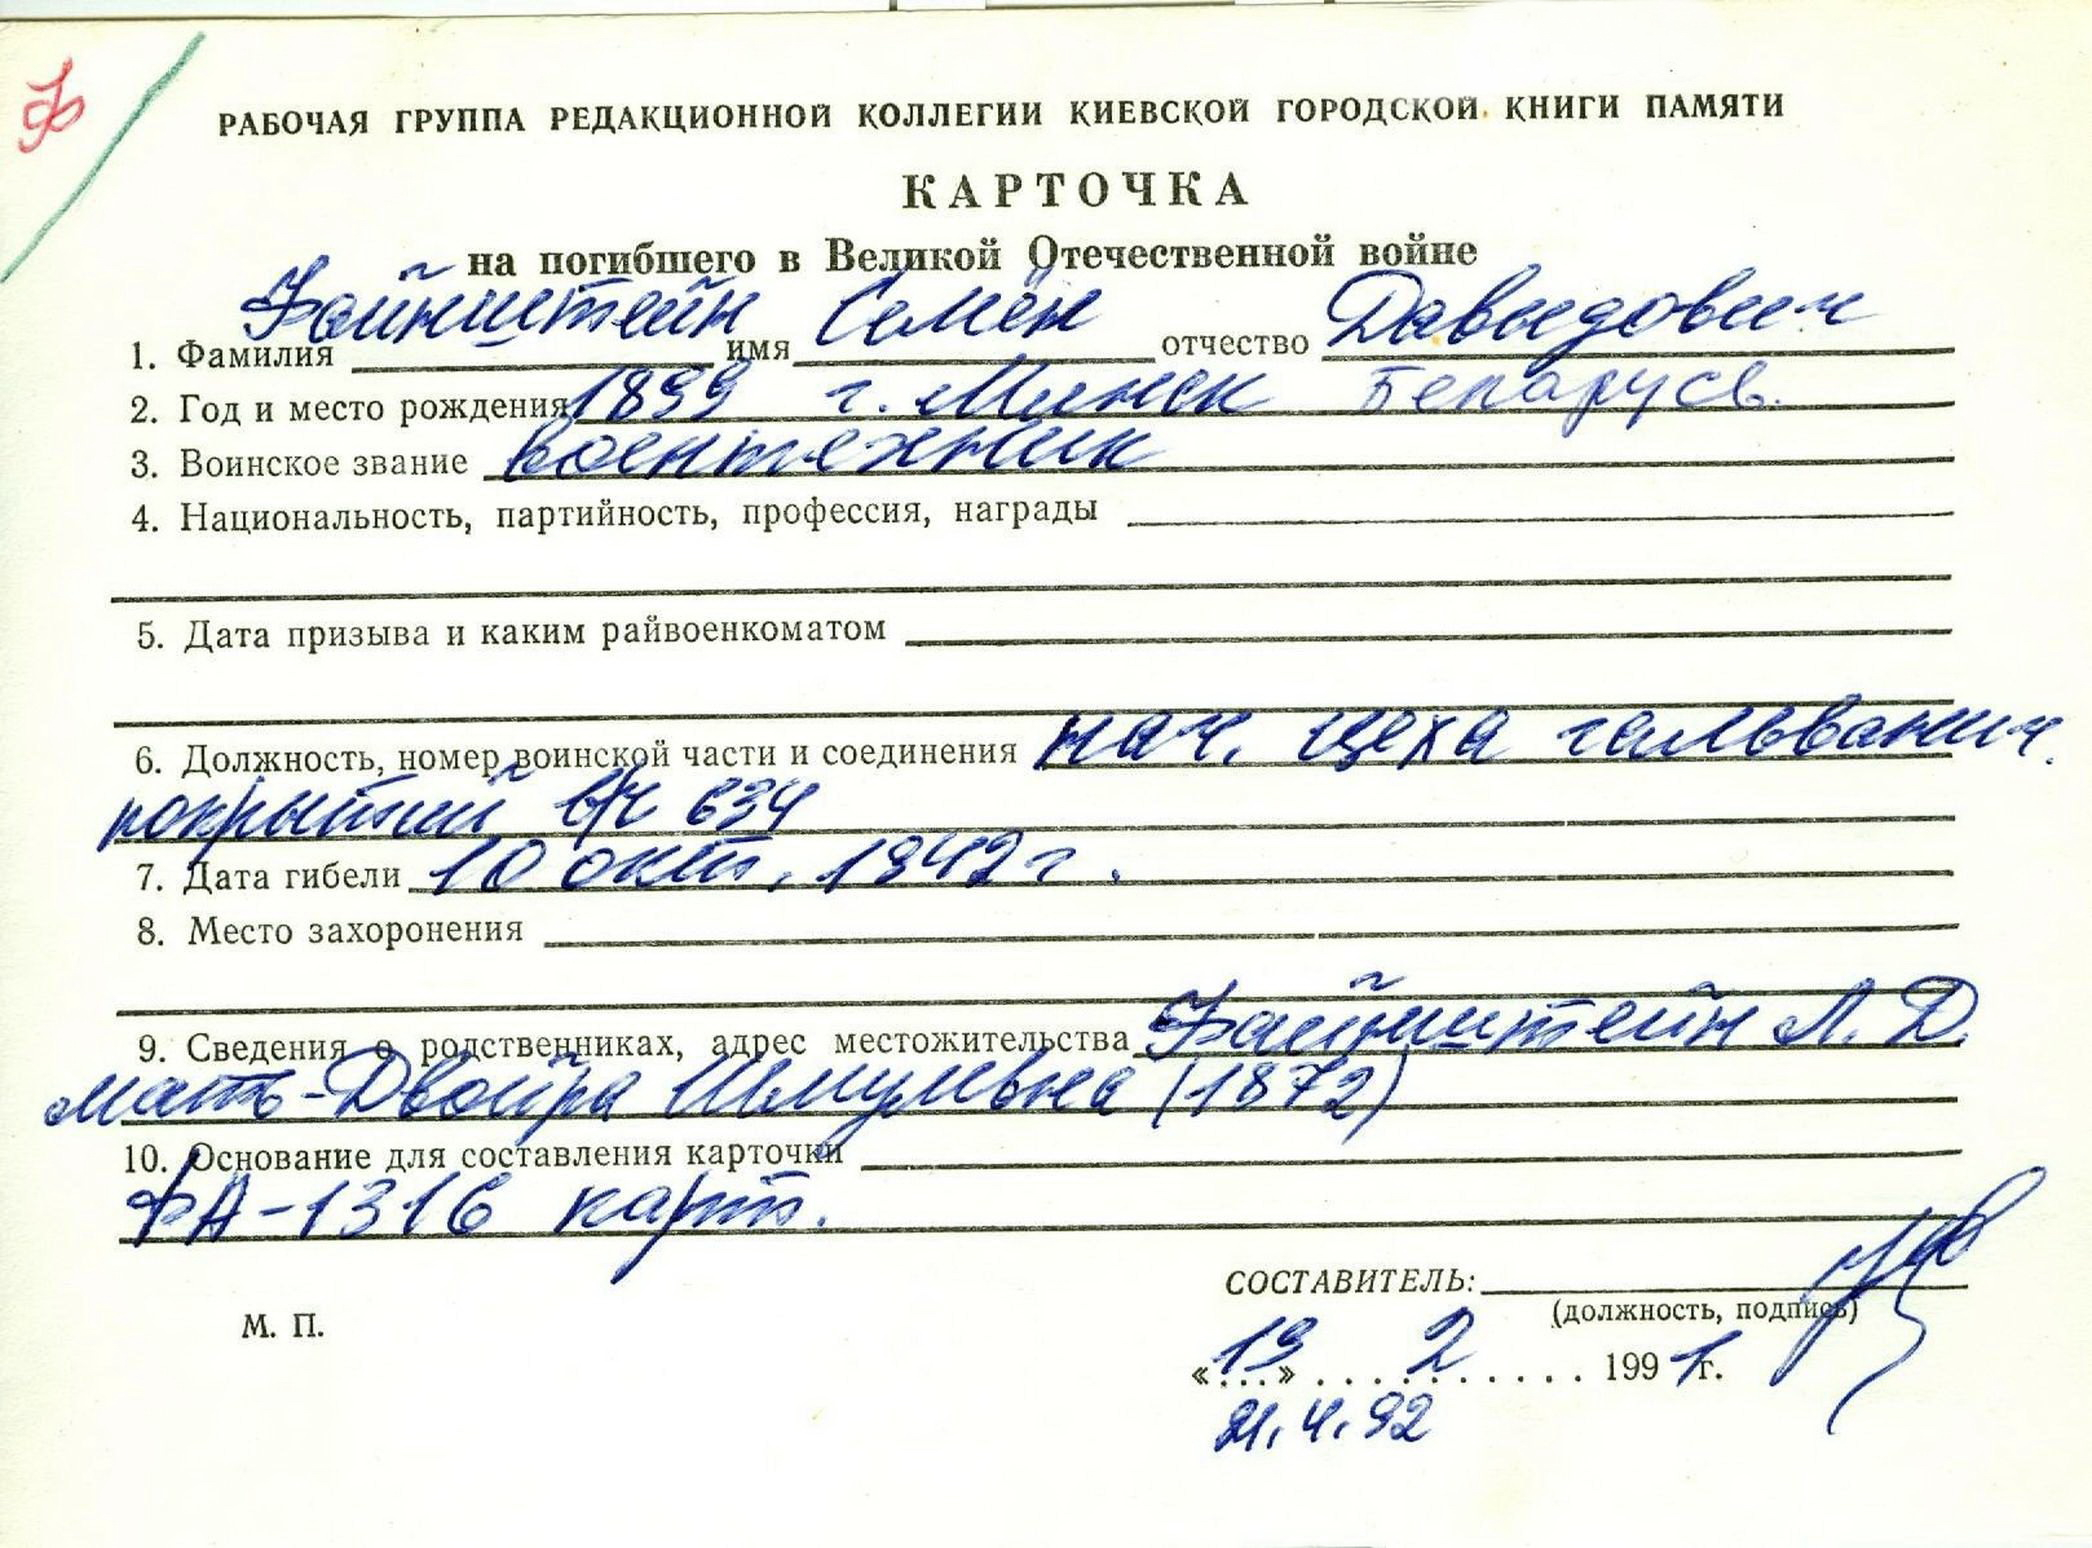 Ф
РАБОЧАЯ ГРУППА РЕДАКЦИОННОЙ КОЛЛЕГИИ КИЕВСКОЙ ГОРОДСКОЙ КНИГИ ПАМЯТИ
КАРТОЧКА
на погибшего в Великой Отечественной войне
1. Фамилия Файнштейн имя Семён отчество Давыдович
2. Год и место рождения 1899 г. Минск Беларусь.
3. Воинское звание воентехник
4. Национальность, партийность, профессия, награды
5. Дата призыва и каким райвоенкоматом
6. Должность, номер воинской части и соединения нач. цеха гальванич.
покрытий в/ч 634
7. Дата гибели 10 окт. 1942 г.
8. Место захоронения
9. Сведения о родственниках, адрес местожительства Файнштейн Л. Д.
мать-Двойра Шмулевна (1872)
10. Основание для составления карточки
ФА-1316 карт.
СОСТАВИТЕЛЬ:
(должность, подпись)
М. П.
«19» 2 1991 г.
21.4.92